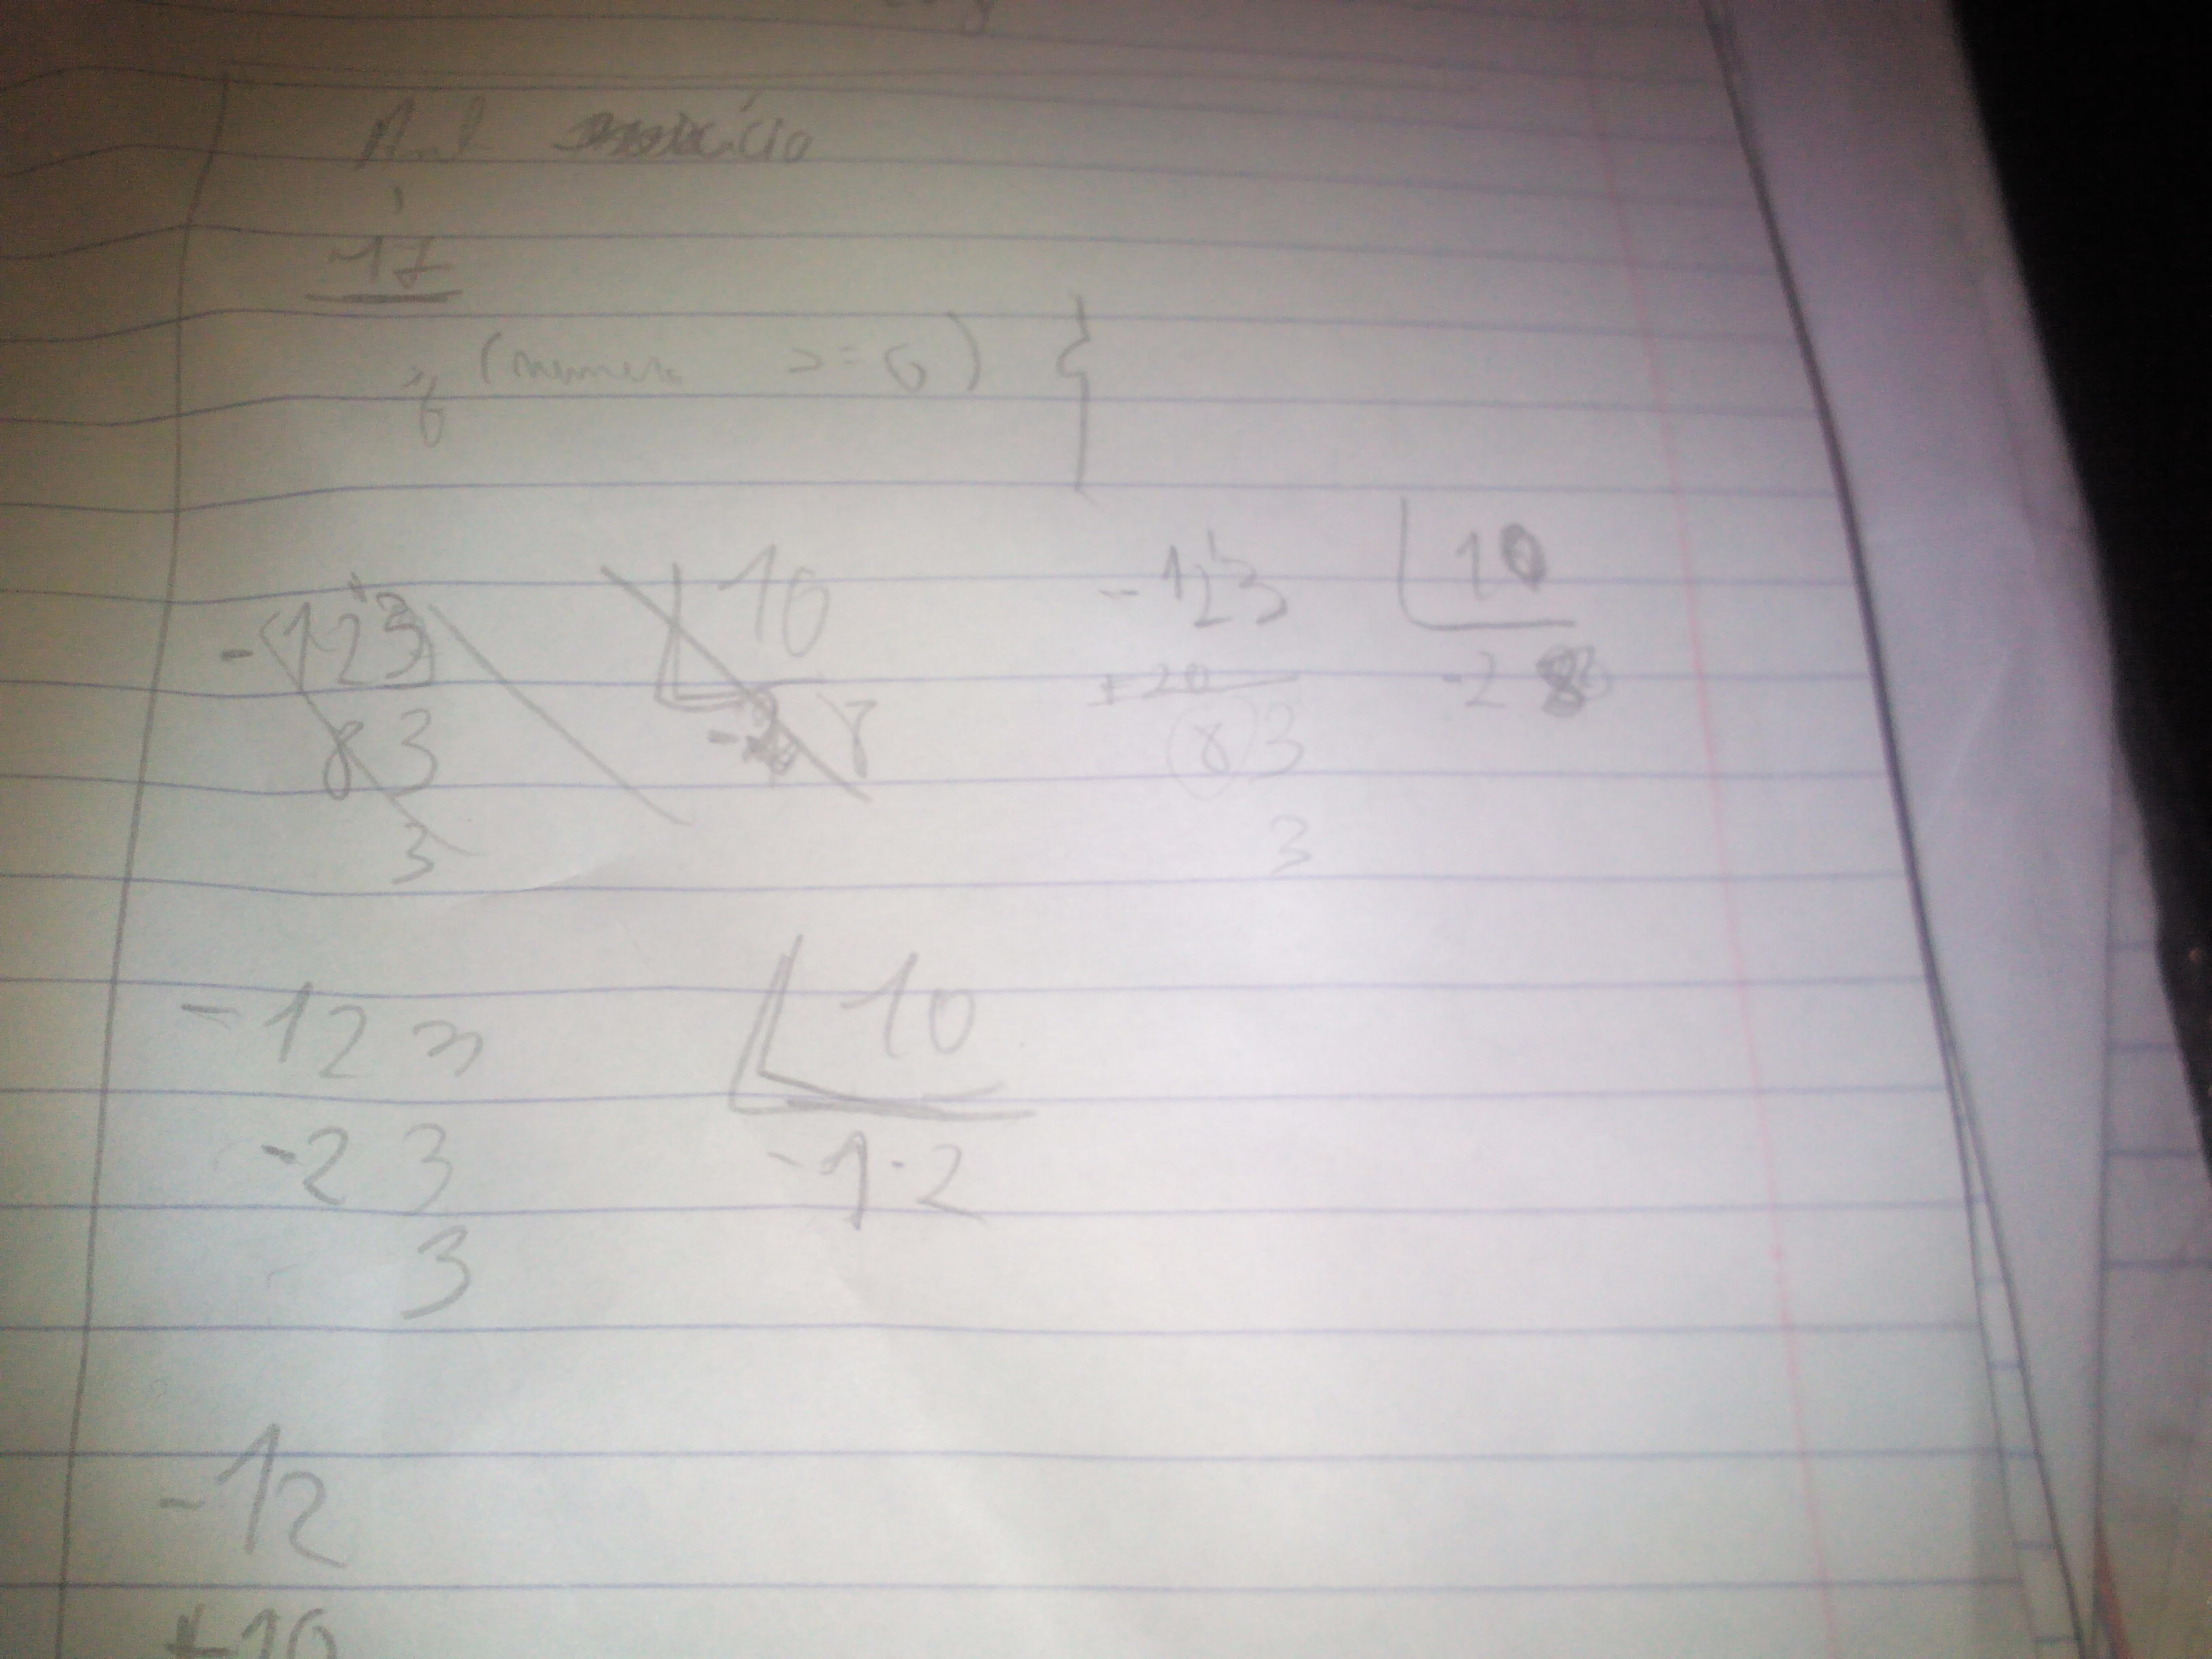 17
(numero >= 0) {
-123 10
83
3
-123 10
+20 -2
83
3
-123 10
-23 -1-2
3
-12
+10